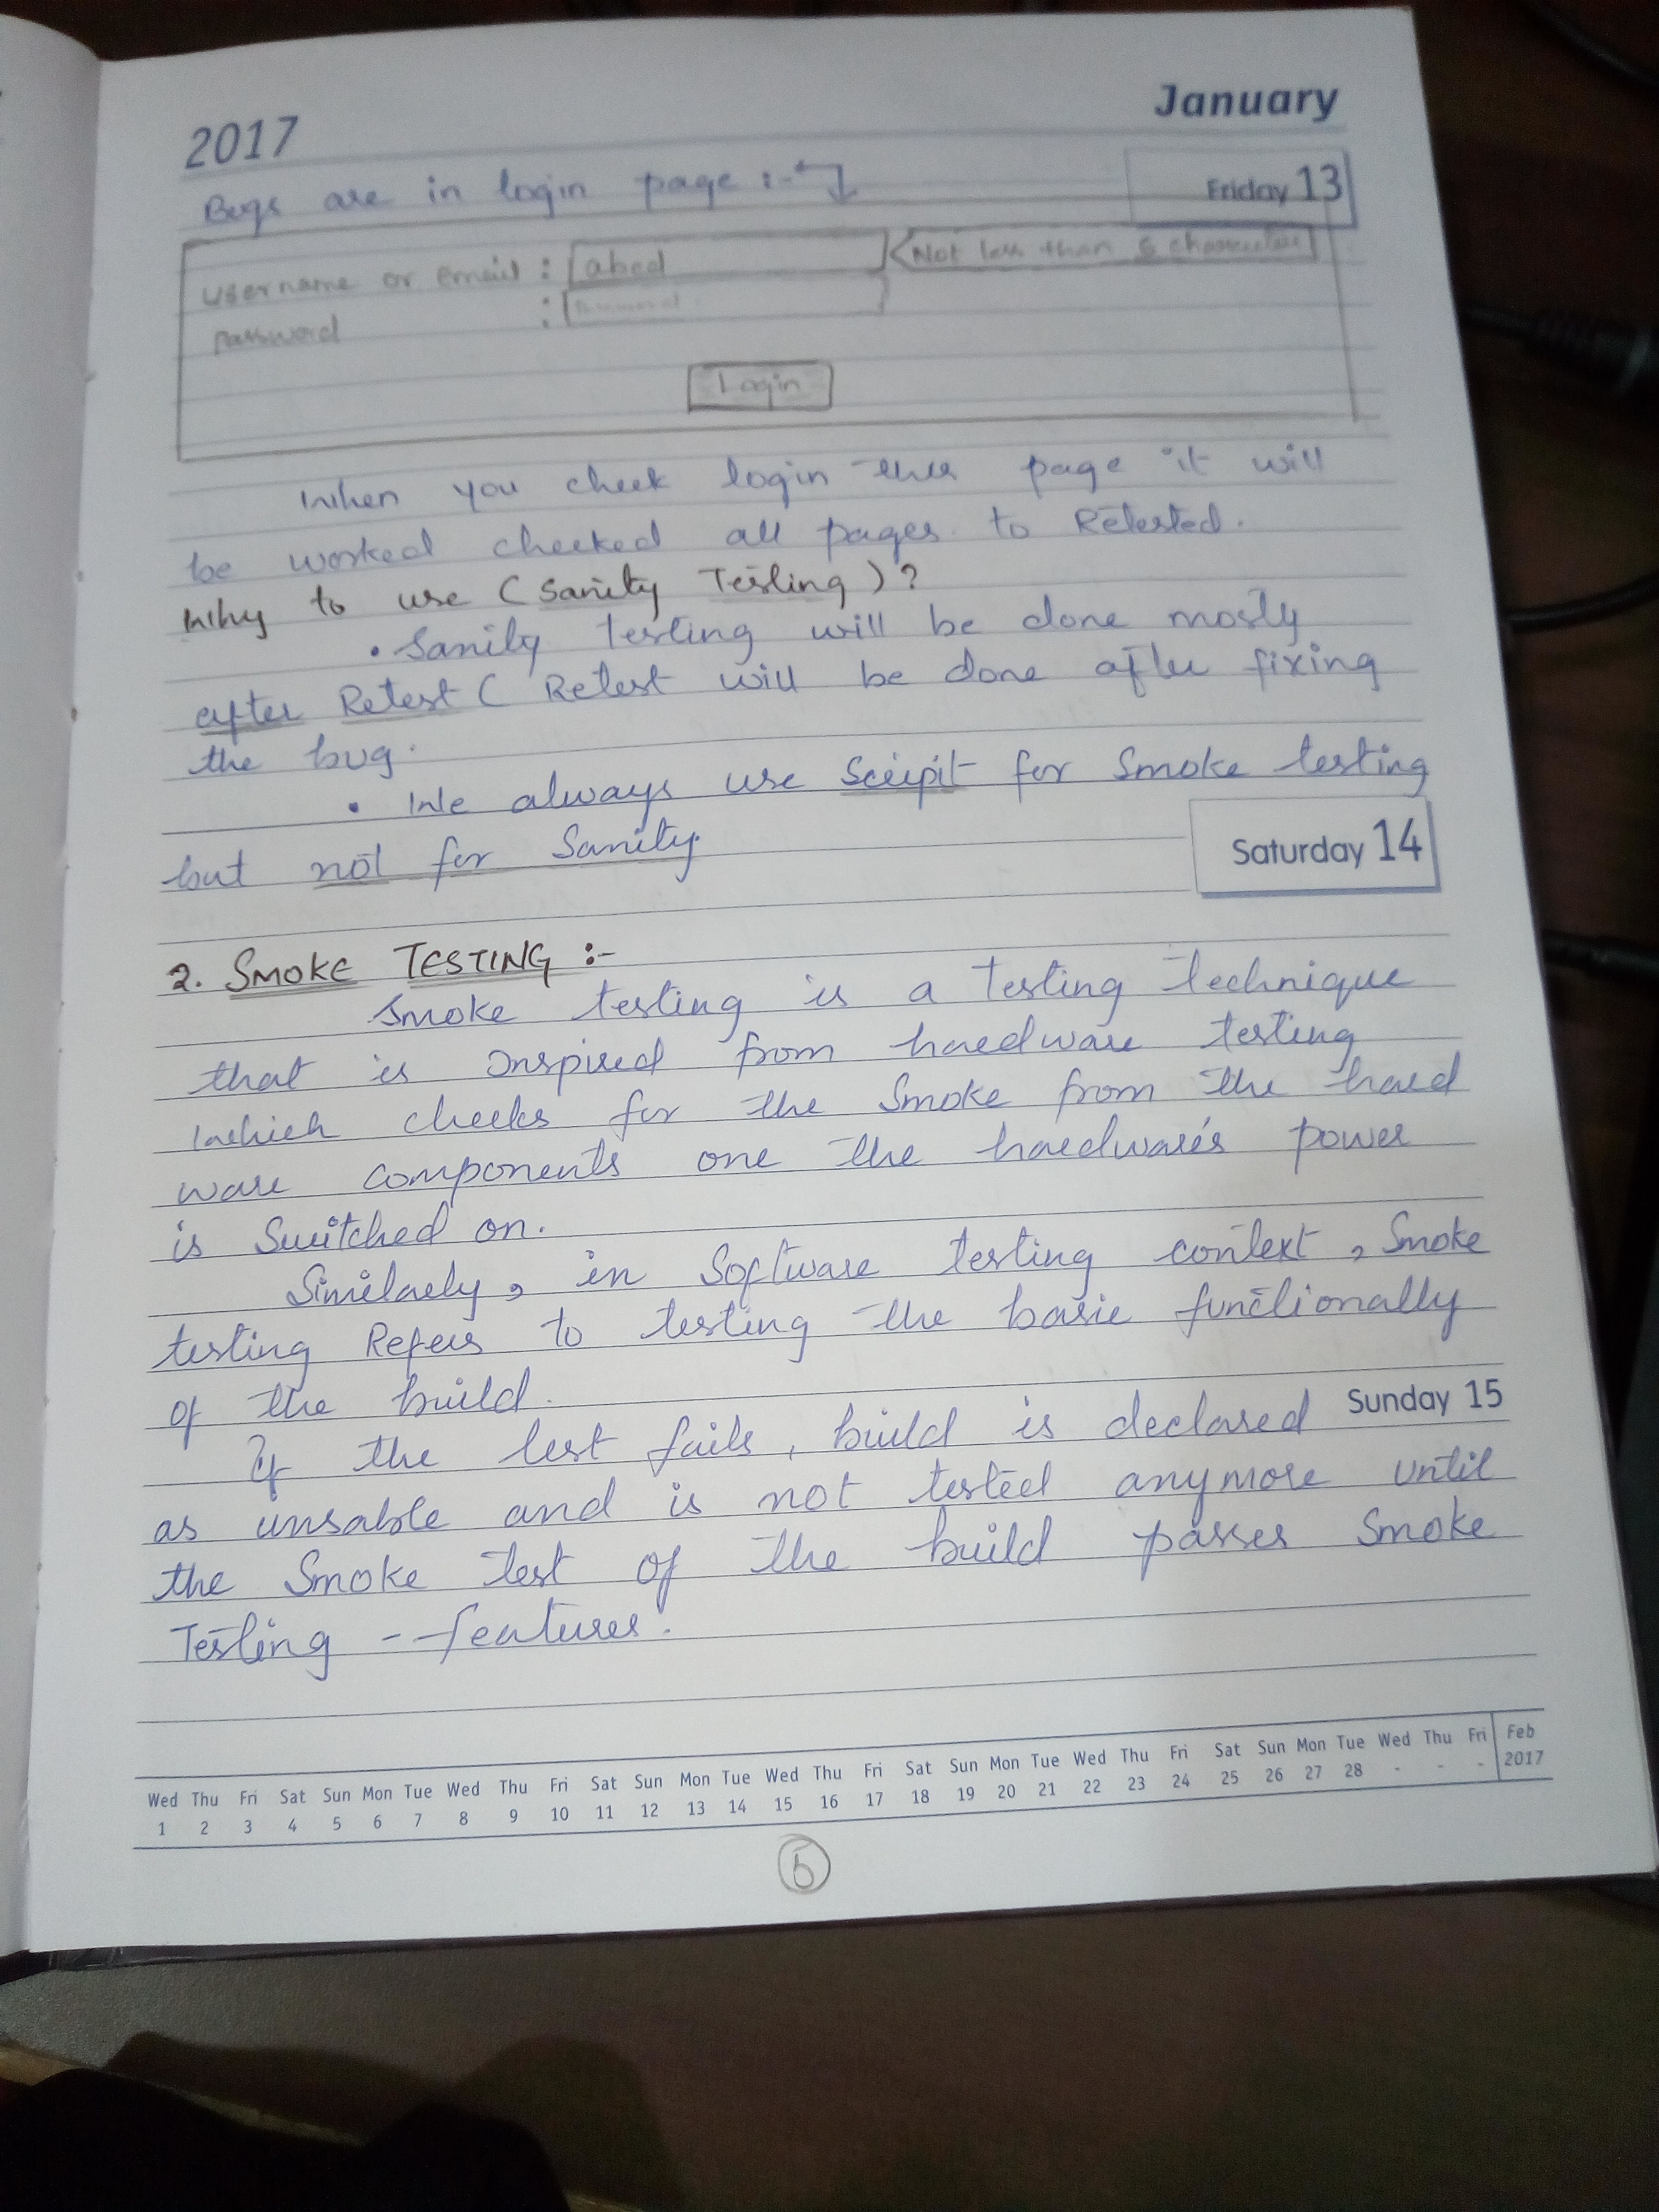 2017
January
Bugs are in login page :-
Friday 13
username or email : abcd
Not less than 6 characters
password :
Login
When you check login this page it will
be worked checked all pages to Retested.
Why to use (Sanity Testing)?
• Sanity testing will be done mostly
after Retest ( Retest will be done after fixing
the bug.
• We always use Scripit for Smoke testing
but not for Sanity.
Saturday 14
2. SMOKE TESTING :-
Smoke testing is a Testing Technique
that is Inspired from hardware testing
which checks for the Smoke from the hard
ware components one the hardware's power
is Switched on.
Similarly, in Software testing context, Smoke
testing Refers to testing the basic functionally
of the build.
Sunday 15
If the test fails, build is declared
as unsable and is not tested anymore until
the Smoke test of the build passes Smoke
Testing --features.
Wed Thu Fri Sat Sun Mon Tue Wed Thu Fri Sat Sun Mon Tue Wed Thu Fri Sat Sun Mon Tue Wed Thu Fri Sat Sun Mon Tue Wed Thu Fri Feb
1 2 3 4 5 6 7 8 9 10 11 12 13 14 15 16 17 18 19 20 21 22 23 24 25 26 27 28 - - - 2017